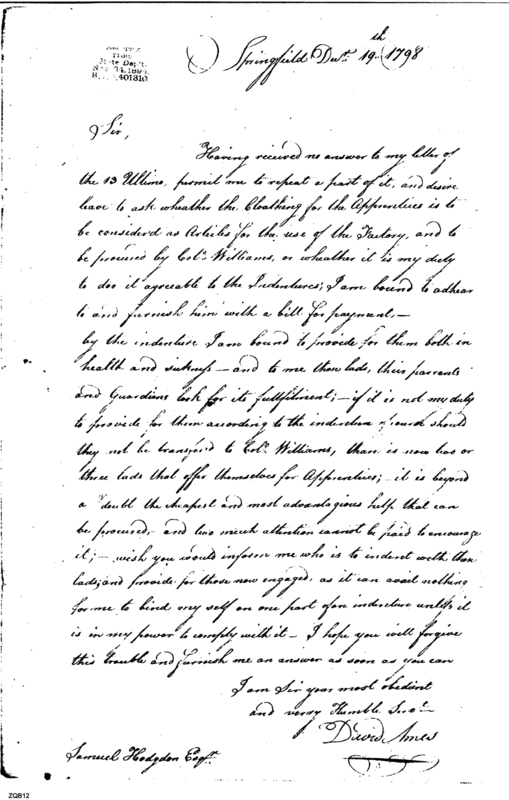 State Dep't.
Springfield Decr. 19th 1798
Sir,
Having received no answer to my letter of
the 13 Ultimo, permit me to repeat a part of it, and desire
leave to ask wheather the Cloathing for the Apprentices is to
be considerd as Articles for the use of the Factory, and to
be procured by Colo. Williams, or wheather it is my duty
to doo it agreable to the Indentures; I am bound to adhear
to and furnish him with a bill for payment;—
by the indenture I am bound to provide for them both in
health and sickness — and to me thou lads, their parrents
and Guardians look for its fullfilment; — if it is not my duty
to provide for them according to the indenture should
they not be transferd to Colo. Williams, thare is now two or
three lads that offer themselves for Apprentices; it is beyond
a doubt the cheapest and most advantagious help that can
be procured, and two much attention cannot be paid to encourage
it; — wish you would inform me who is to indent with thou
lads; and provide for those now engaged, as it can avail nothing
for me to bind my self on one part of an indenture unless it
is in my power to comply with it — I hope you will forgive
this trouble and furnish me an answer as soon as you can
I am Sir your most obedient
and verry Humble Servt.
David Ames
Samuel Hodgdon Esqr.
ZQB12